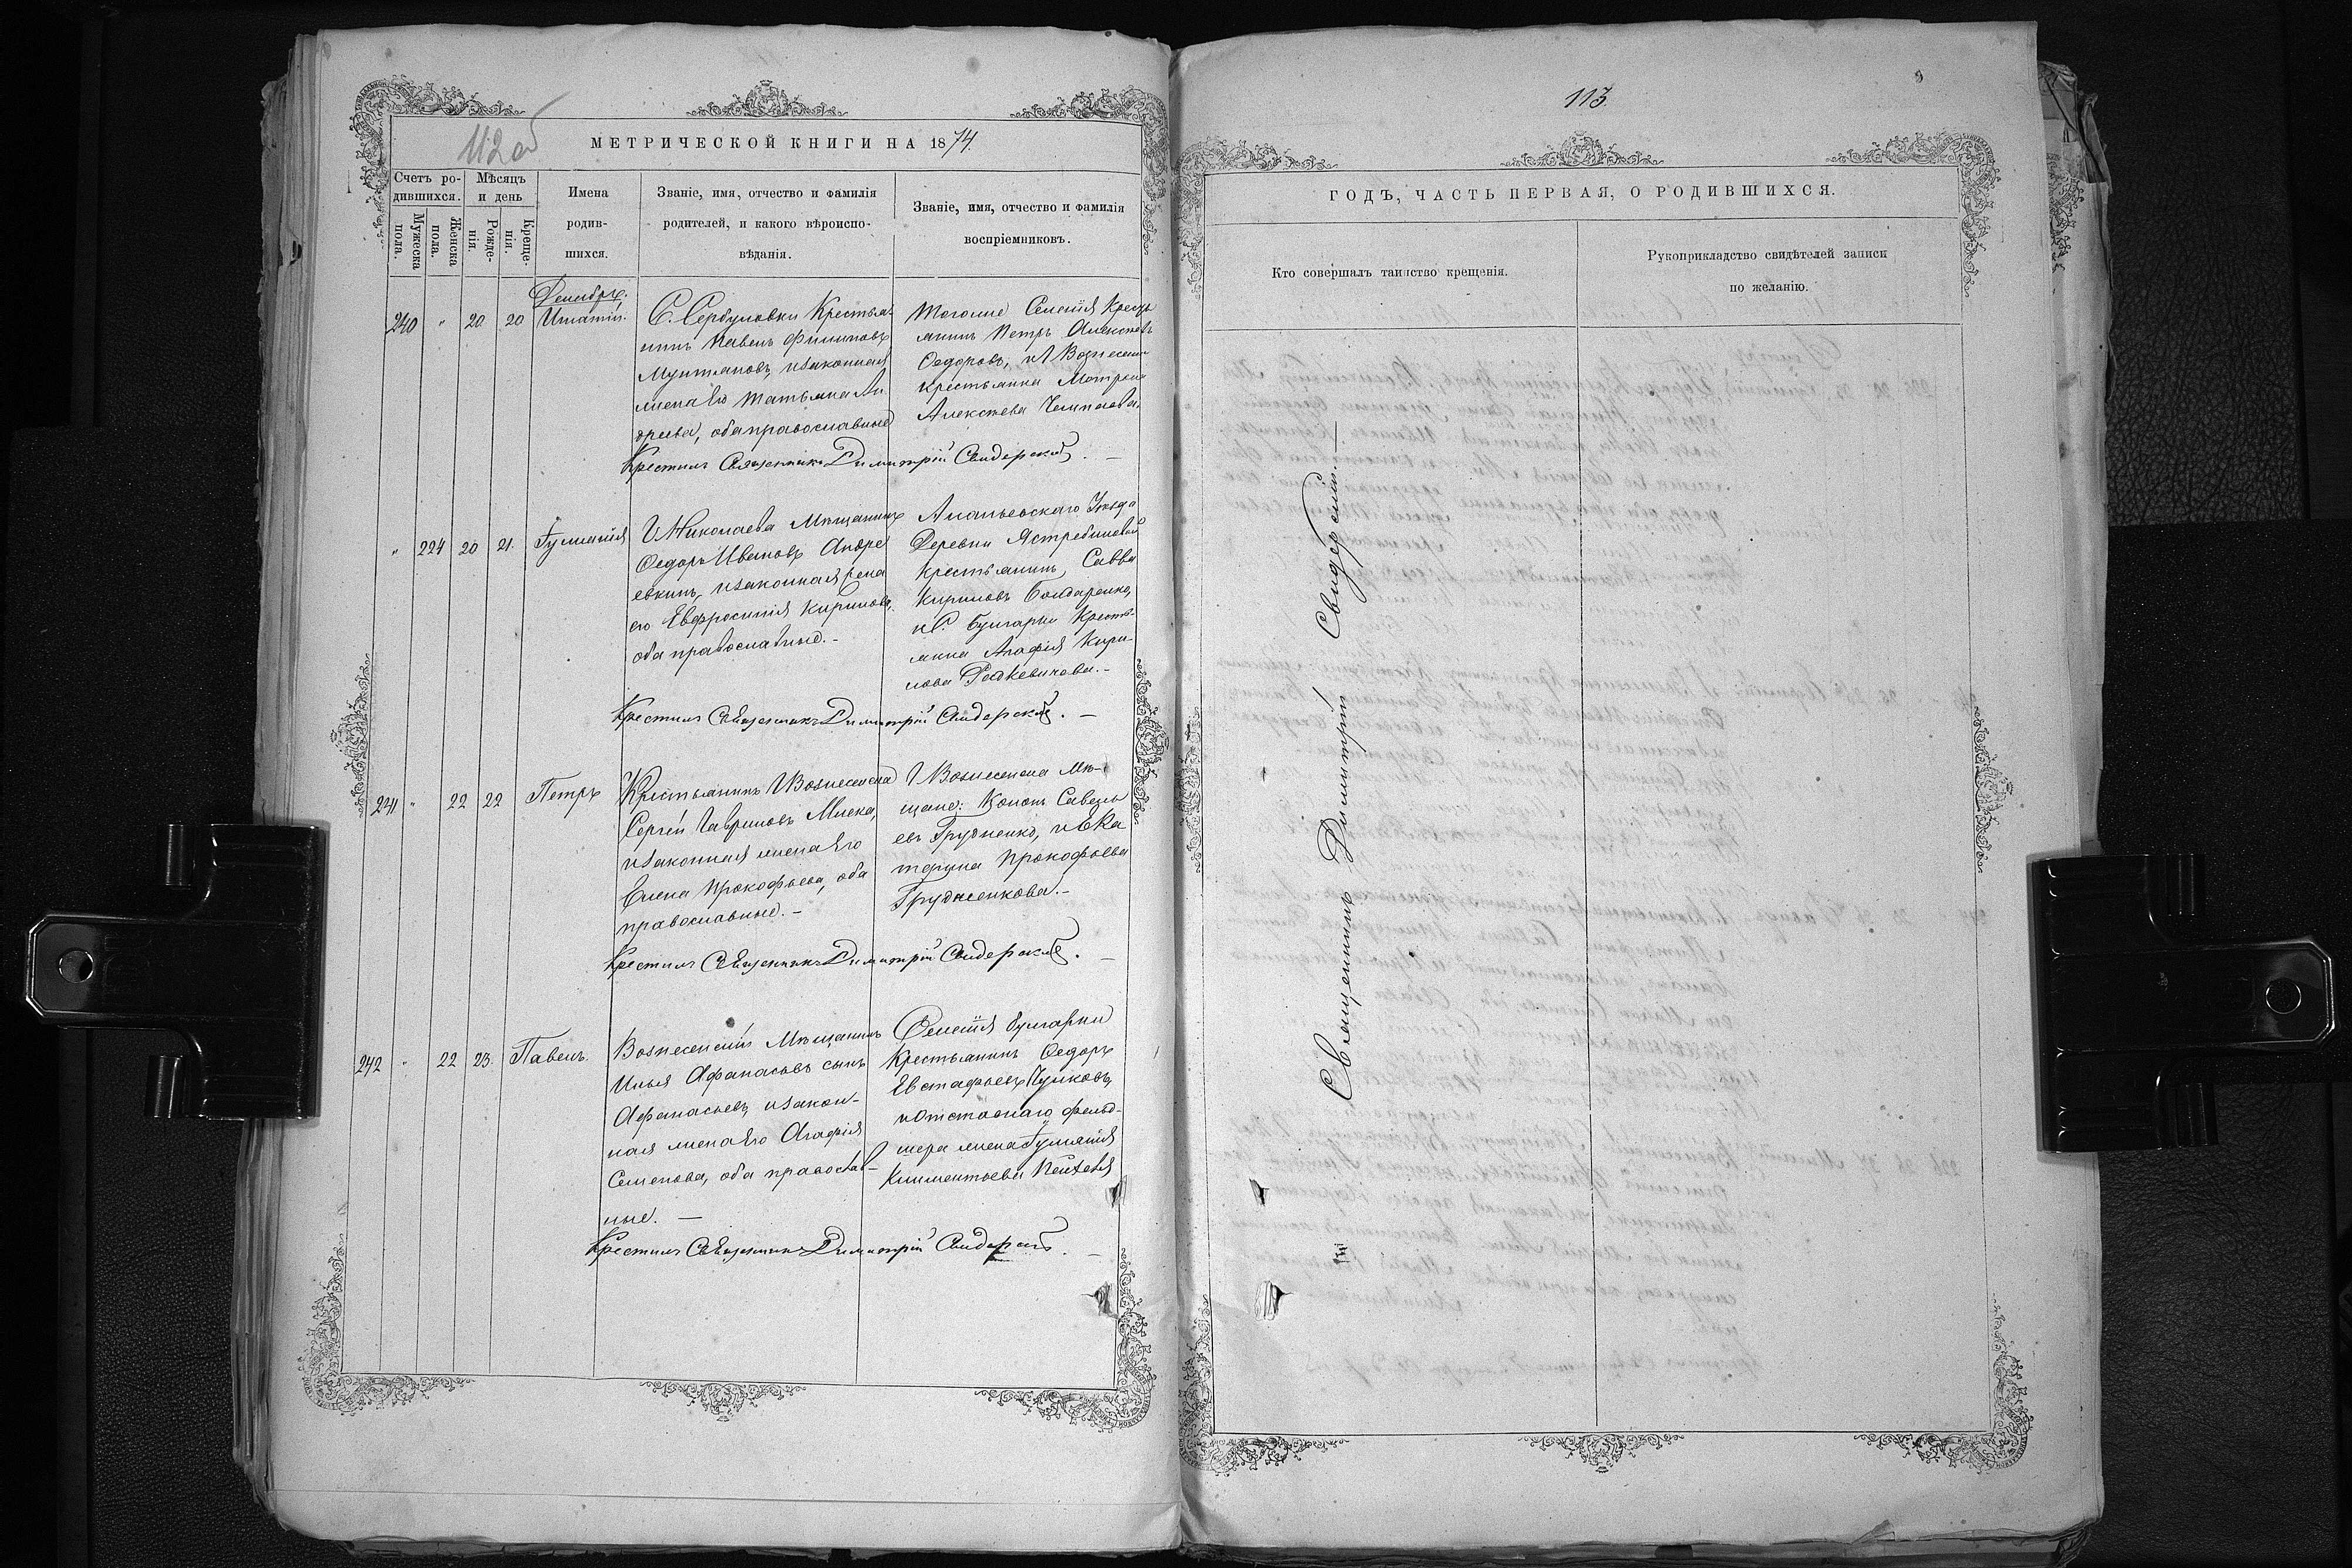 112об
МЕТРИЧЕСКОЙ КНИГИ НА 1874.
Счетъ ро-
дившихся.
Мужеска
пола.
Женска
пола.
Мѣсяцъ
и день
Рожде-
нія.
Креще-
нія.
Имена
родив-
шихся.
Званіе, имя, отчество и фамилія
родителей, и какого вѣроиспо-
вѣданія.
Званіе, имя, отчество и фамилія
воспріемниковъ.
Декабрь.
240 " 20 20 Игнатій.
С. Сербуловки Крестья-
нинъ Павелъ Филиповъ
Мунтяновъ, и законная
жена его Татьяна Ан
дреева, оба православные
Тогоже Селенія Кресть
янинъ Петръ Алексѣевъ
Ѳедоровъ, и Г. Вознесен
крестьянка Матрона
Алексѣева
Крестилъ Священникъ Димитрій Свидерскій. —
" 224 20 21. Іулианія
Г. Николаева Мѣщанинъ
Ѳедоръ Ивановъ Андре
евкинъ, и законная жена
его Евфросинія Кирилова,
оба православные. -
Ананьевскаго Уѣзда
Деревни Ястребиновой
Крестьянинъ Савва
Кириловъ Бондаренко,
и С. Булгарки Кресть-
янка Агафія Кири-
лова -
Крестилъ Священникъ Димитрій Свидерскій. —
241 " 22 22 Петръ
Крестьянинъ Г. Вознесенска
Сергѣй Гавриловъ
и законная жена его
Елена Прокофьева, оба
православные. -
Г. Вознесенска Мѣ-
щане: Кононъ Савелье
евъ Грудненко, и Ека
терина Прокофьева
Грудненкова. -
Крестилъ Священникъ Димитрій Свидерскій. —
242 " 22 23. Павелъ.
Вознесенскій Мѣщанинъ
Илья Афанасьевъ сынъ
Афанасьевъ, и закон-
ная жена его Агафія
Семенова, оба православ-
ные. —
Селенія Булгарки
Крестьянинъ Ѳедоръ
Евстафьевъ Чуйковъ,
и Отставнаго фельд-
шера жена Іулианія
Климентьева
Крестилъ Священникъ Димитрій Свидерскій. —
113.
ГОДЪ, ЧАСТЬ ПЕРВАЯ, О РОДИВШИХСЯ.
Кто совершалъ таинство крещенія.
Рукоприкладство свидѣтелей записи
по желанію.
Священникъ Димитрій Свидерскій. —